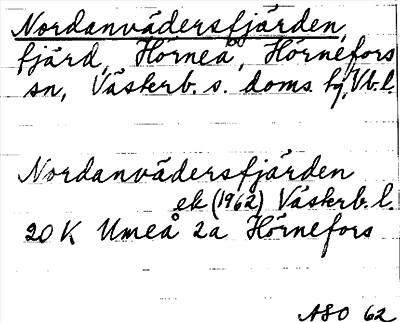 Nordanvädersfjärden,
fjärd, Hörneå, Hörnefors
sn, Västerb. s. doms hg, Vb. l.
Nordanvädersfjärden
ek (1962) Västerb. l.
20 K Umeå 2a Hörnefors
ASO 62